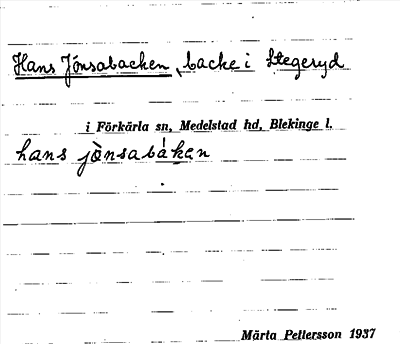 Hans Jönsabacken, backe i Stegeryd
i Förkärla sn, Medelstad hd, Blekinge l.
hans jònsabáken
Märta Pettersson 1937